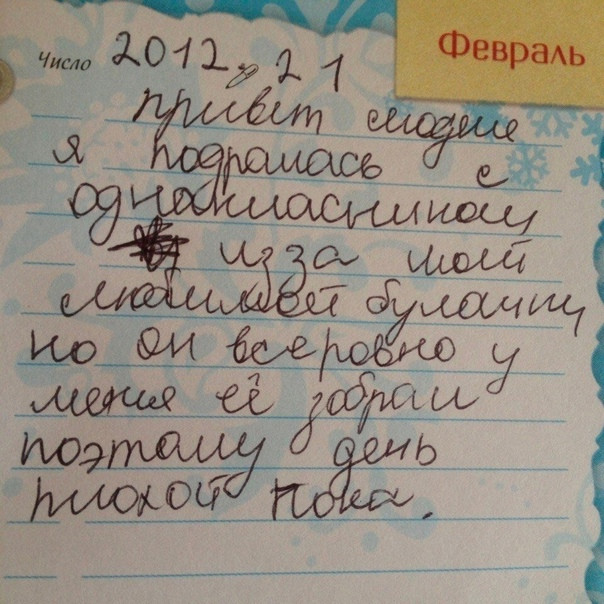 Февраль
Число 2012. 21
Привет сегодне
я подралась с
однокласником
из за моей
любимой булачки
но он всеровно у
меня её забрал
поэтому день
плохой Пока.